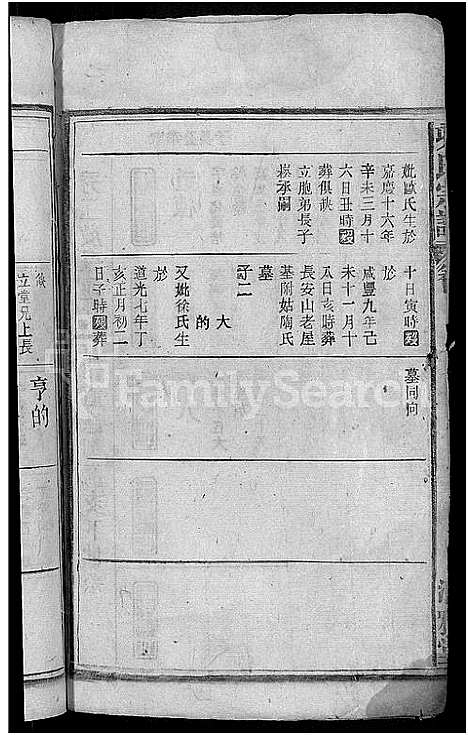 妣歐氏生於
嘉慶十六年
辛未三月十
六日丑時歿
葬俱缺
立胞弟長子
承嗣
十日寅時歿
於
咸豐九年己
未十一月十
日亥時葬
長安山老屋
基附姑陶氏
墓
子二
大
的
又妣徐氏生
於
道光七年丁
亥正月初二
日子時歿葬
墓同向
立堂兄上長
亨的
FamilySearch